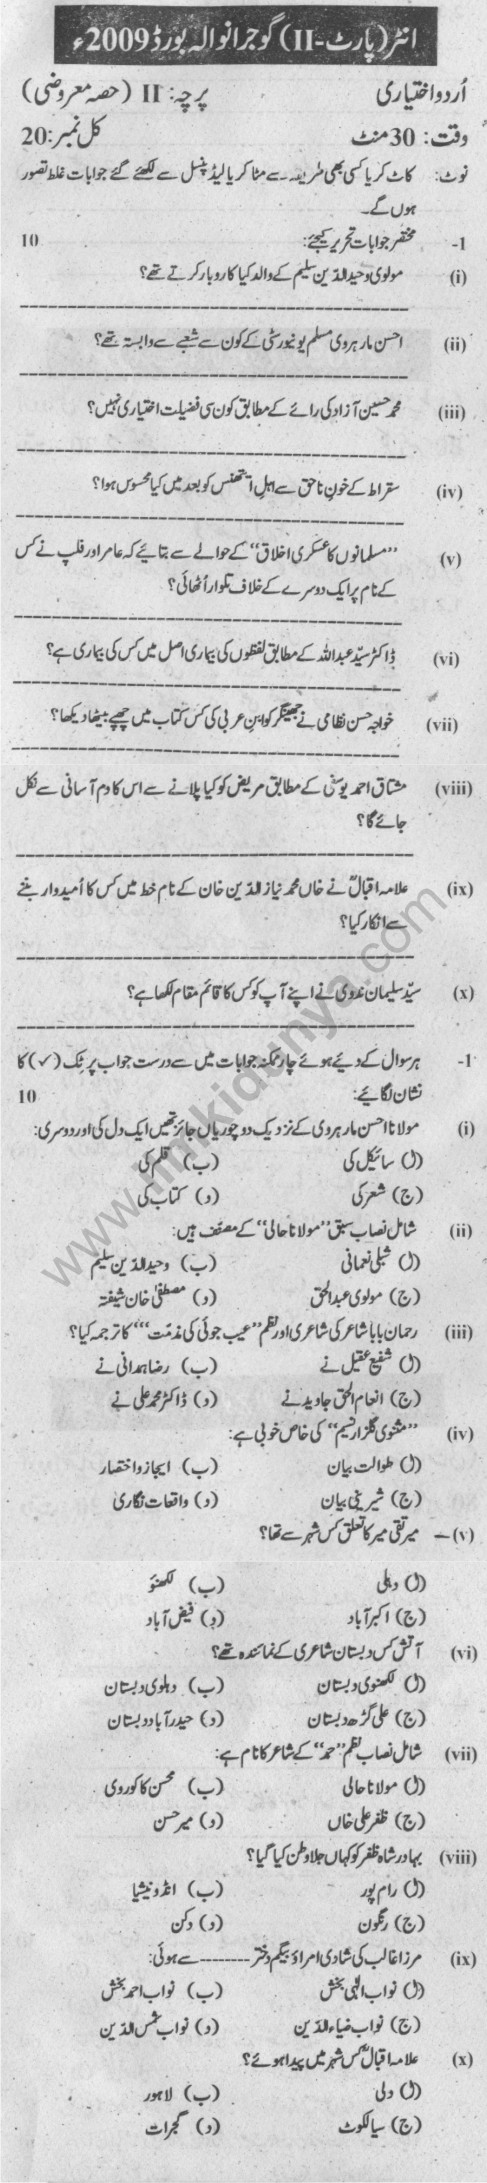 انٹر (پارٹ-II) گوجرانوالہ بورڈ 2009ء
اُردو اختیاری پرچہ: II (حصہ معروضی)
وقت: 30 منٹ کل نمبر: 20
نوٹ: کاٹ کر یا کسی بھی طریقہ سے مٹا کر یا لیڈ پنسل سے لکھے گئے جوابات غلط تصور
ہوں گے۔
1- مختصر جوابات تحریر کیجئے: 10
(i) مولوی وحید الدّین سلیم کے والد کیا کاروبار کرتے تھے؟
(ii) احسن مارہروی مسلم یونیورسٹی کے کون سے شعبے سے وابستہ تھے؟
(iii) محمد حسین آزاد کی رائے کے مطابق کون سی فضیلت اختیاری نہیں؟
(iv) سقراط کے خونِ ناحق سے اہلِ ایتھنس کو بعد میں کیا محسوس ہوا؟
(v) ”مسلمانوں کا عسکری اخلاق“ کے حوالے سے بتائیے کہ عامر اور فلپ نے کس
کے نام پر ایک دوسرے کے خلاف تلوار اُٹھائی؟
(vi) ڈاکٹر سیّد عبداللہ کے مطابق لفظوں کی بیماری اصل میں کس کی بیماری ہے؟
(vii) خواجہ حسن نظامی نے جھینگر کو ابنِ عربی کی کس کتاب میں چھپے بیٹھا دیکھا؟
(viii) مشتاق احمد یوسفی کے مطابق مریض کو کیا پلانے سے اس کا دم آسانی سے نکل
جائے گا؟
(ix) علامہ اقبالؒ نے خاں محمد نیاز الدّین خان کے نام خط میں کس کا اُمیدوار بننے
سے انکار کیا؟
(x) سیّد سلیمان ندوی نے اپنے آپ کو کس کا قائم مقام لکھا ہے؟
1- ہر سوال کے دیئے ہوئے چار ممکنہ جوابات میں سے درست جواب پر ٹِک (✓) کا
نشان لگائیے: 10
(i) مولانا احسن مارہروی کے نزدیک دو چوریاں جائز تھیں ایک دل کی اور دوسری:
(ا) سائیکل کی (ب) قلم کی
(ج) شعر کی (د) کتاب کی
(ii) شاملِ نصاب سبق ”مولانا حالی“ کے مصنف ہیں:
(ا) شبلی نعمانی (ب) وحید الدّین سلیم
(ج) مولوی عبدالحق (د) مصطفٰی خان شیفتہ
(iii) رحمان بابا شاعر کی شاعری اور نظم ”عیب جوئی کی مذمت“ کا ترجمہ کیا؟
(ا) شفیع عقیل نے (ب) رضا ہمدانی نے
(ج) انعام الحق جاوید نے (د) ڈاکٹر محمد علی نے
(iv) ”مثنوی گلزارِ نسیم“ کی خاص خوبی ہے:
(ا) طوالت بیان (ب) ایجاز و اختصار
(ج) شیرینی بیان (د) واقعات نگاری
(v) – میر تقی میر کا تعلق کس شہر سے تھا؟
(ا) دہلی (ب) لکھنؤ
(ج) اکبر آباد (د) فیض آباد
(vi) آتش کس دبستان شاعری کے نمائندہ تھے؟
(ا) لکھنوی دبستان (ب) دہلوی دبستان
(ج) علی گڑھ دبستان (د) حیدر آباد دبستان
(vii) شاملِ نصاب نظم ”حمد“ کے شاعر کا نام ہے:
(ا) مولانا حالی (ب) محسن کاکوروی
(ج) ظفر علی خاں (د) میر حسن
(viii) بہادر شاہ ظفر کو کہاں جلا وطن کیا گیا؟
(ا) رام پور (ب) انڈونیشیا
(ج) رنگون (د) دکن
(ix) مرزا غالب کی شادی امراؤ بیگم دختر -------- سے ہوئی:
(ا) نواب الٰہی بخش (ب) نواب احمد بخش
(ج) نواب ضیاء الدّین (د) نواب شمس الدّین
(x) علامہ اقبالؒ کس شہر میں پیدا ہوئے؟
(ا) دلی (ب) لاہور
(ج) سیالکوٹ (د) گجرات
www.ilmkidunya.com